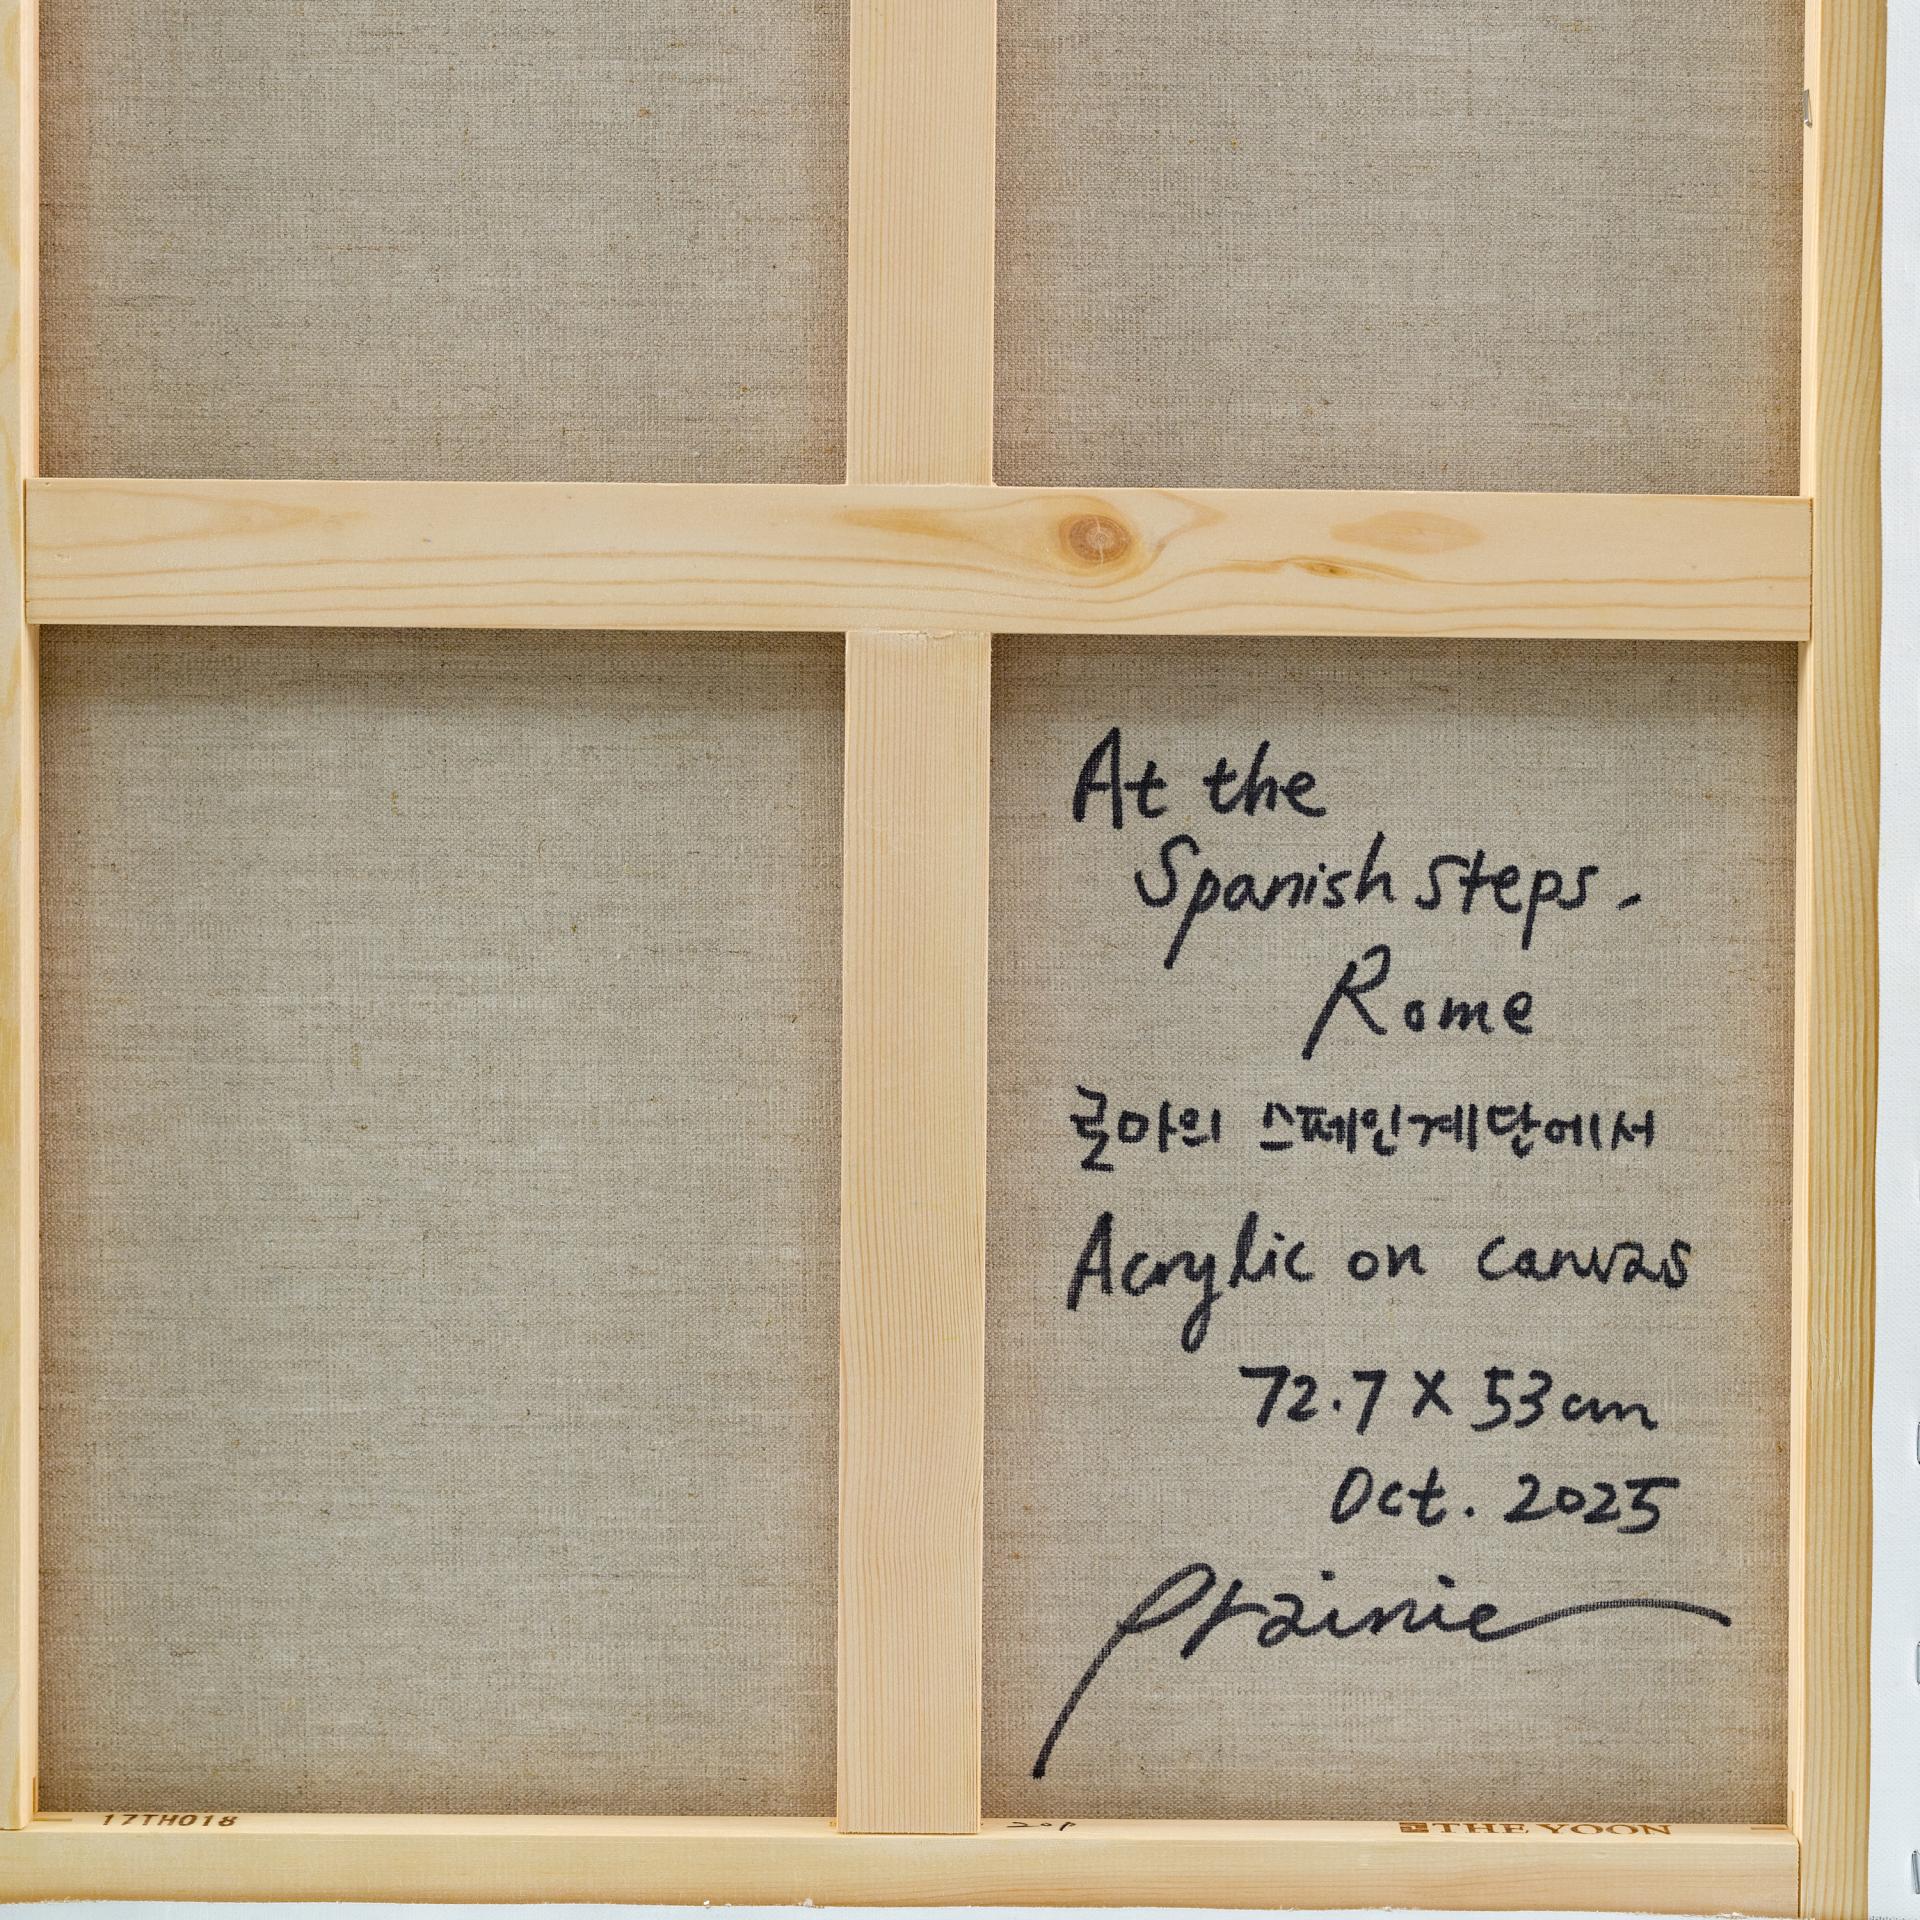 At the
Spanish steps -
Rome
로마의 스페인계단에서
Acrylic on canvas
72.7 X 53cm
Oct. 2025
Prairie
17TH018
20P
THE YOON